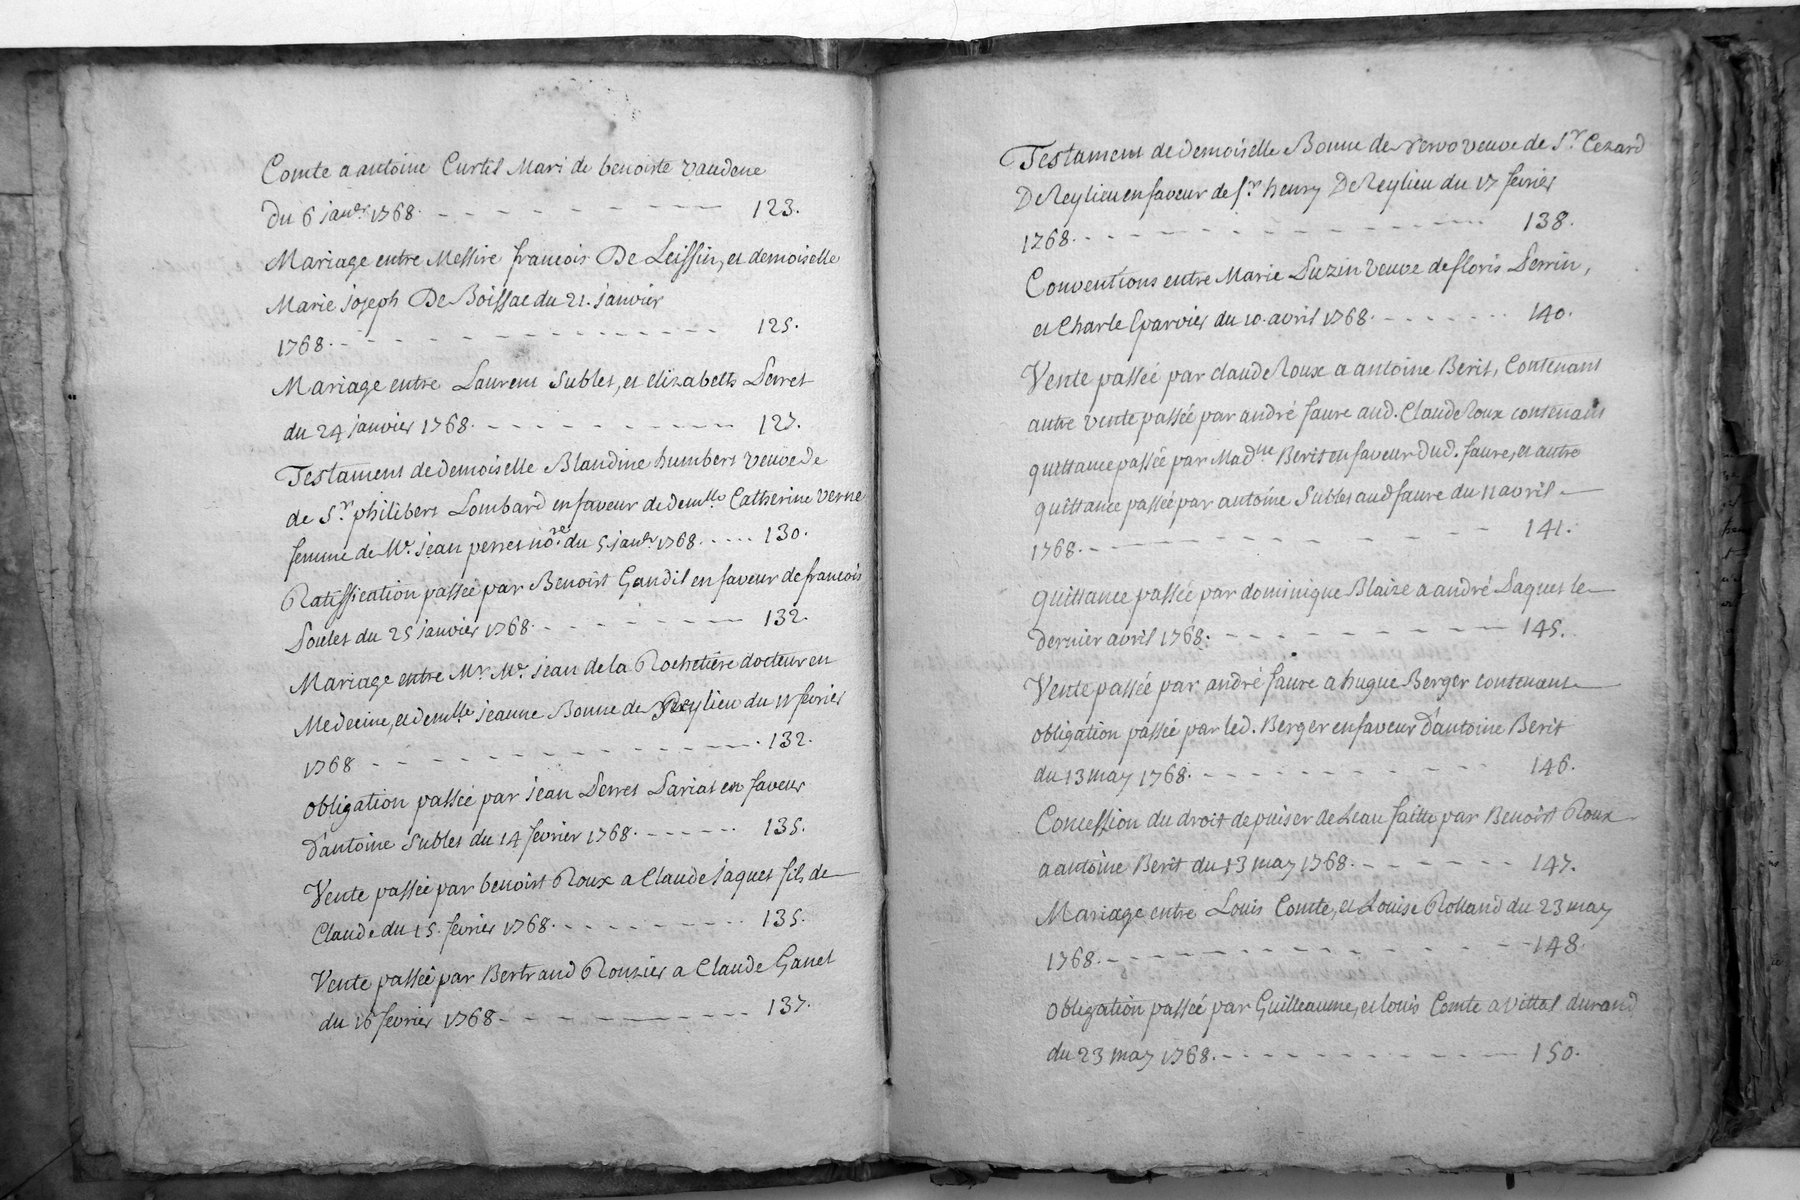 Comte a antoine Curtil Mari de benoiste vaudene
Du 6 janvr 1768. 123.
Mariage entre Messire francois De Leissin, et demoiselle
Marie joseph De Boissac du 21. janvier
1768. 125.
Mariage entre Laurent Sublet, et elizabeth Perret
du 24 janvier 1768. 127.
Testament de demoiselle Blandine humbert veuve de
de Sr philibert Lombard en faveur de demlle Catherine verne
femme de Me. jean perret nore. du 5. janvr 1768. 130.
Ratiffication passée par Benoist Gandil en faveur de francois
Poulet du 25 janvier 1768. 132.
Mariage entre Mr Me. jean de la Rochetiere docteur en
Medecine, et demlle jeanne Bonne de Reylieu du 11 fevrier
1768 132.
obligation passée par jean Perret Pariat en faveur
d'antoine Sublet du 14 fevrier 1768. 135.
Vente passée par benoist Roux a Claude jaquet fils de
Claude du 15. fevrier 1768. 135.
Vente passée par Bertrand Rouzier a Claude Ganet
du 16 fevrier 1768 137.
Testament de demoiselle Bonne de Yervo veuve de Sr. Cezard
DeReylieu en faveur de Sr henry DeReylieu du 17 fevrier
1768. 138.
Conventions entre Marie Luzin veuve de floris Perrin,
et Charle Eparvier du 10. avril 1768. 140.
Vente passée par claude Roux a antoine Berit, Contenant
autre vente passée par andré faure aud. Claude Roux contenant
quittance passée par Madme Berit en faveur dud. faure, et autre
quittance passée par antoine Sublet aud faure du 11 avril
1768. 141.
quittance passée par dominique Blaize a andré Paquet le
dernier avril 1768. 145.
Vente passée par andré faure a hugue Berger contenant
obligation passée par led. Berger en faveur d'antoine Berit
du 13 may 1768. 146.
Concession du droit de puiser de Leau faitte par Benoist Roux
a antoine Berit du 13 may 1768. 147.
Mariage entre Louis Comte, et Louise Rolland du 23 may
1768. 148.
obligation passée par Guilleaume, et louis Comte a vittal durand
du 23 may 1768. 150.